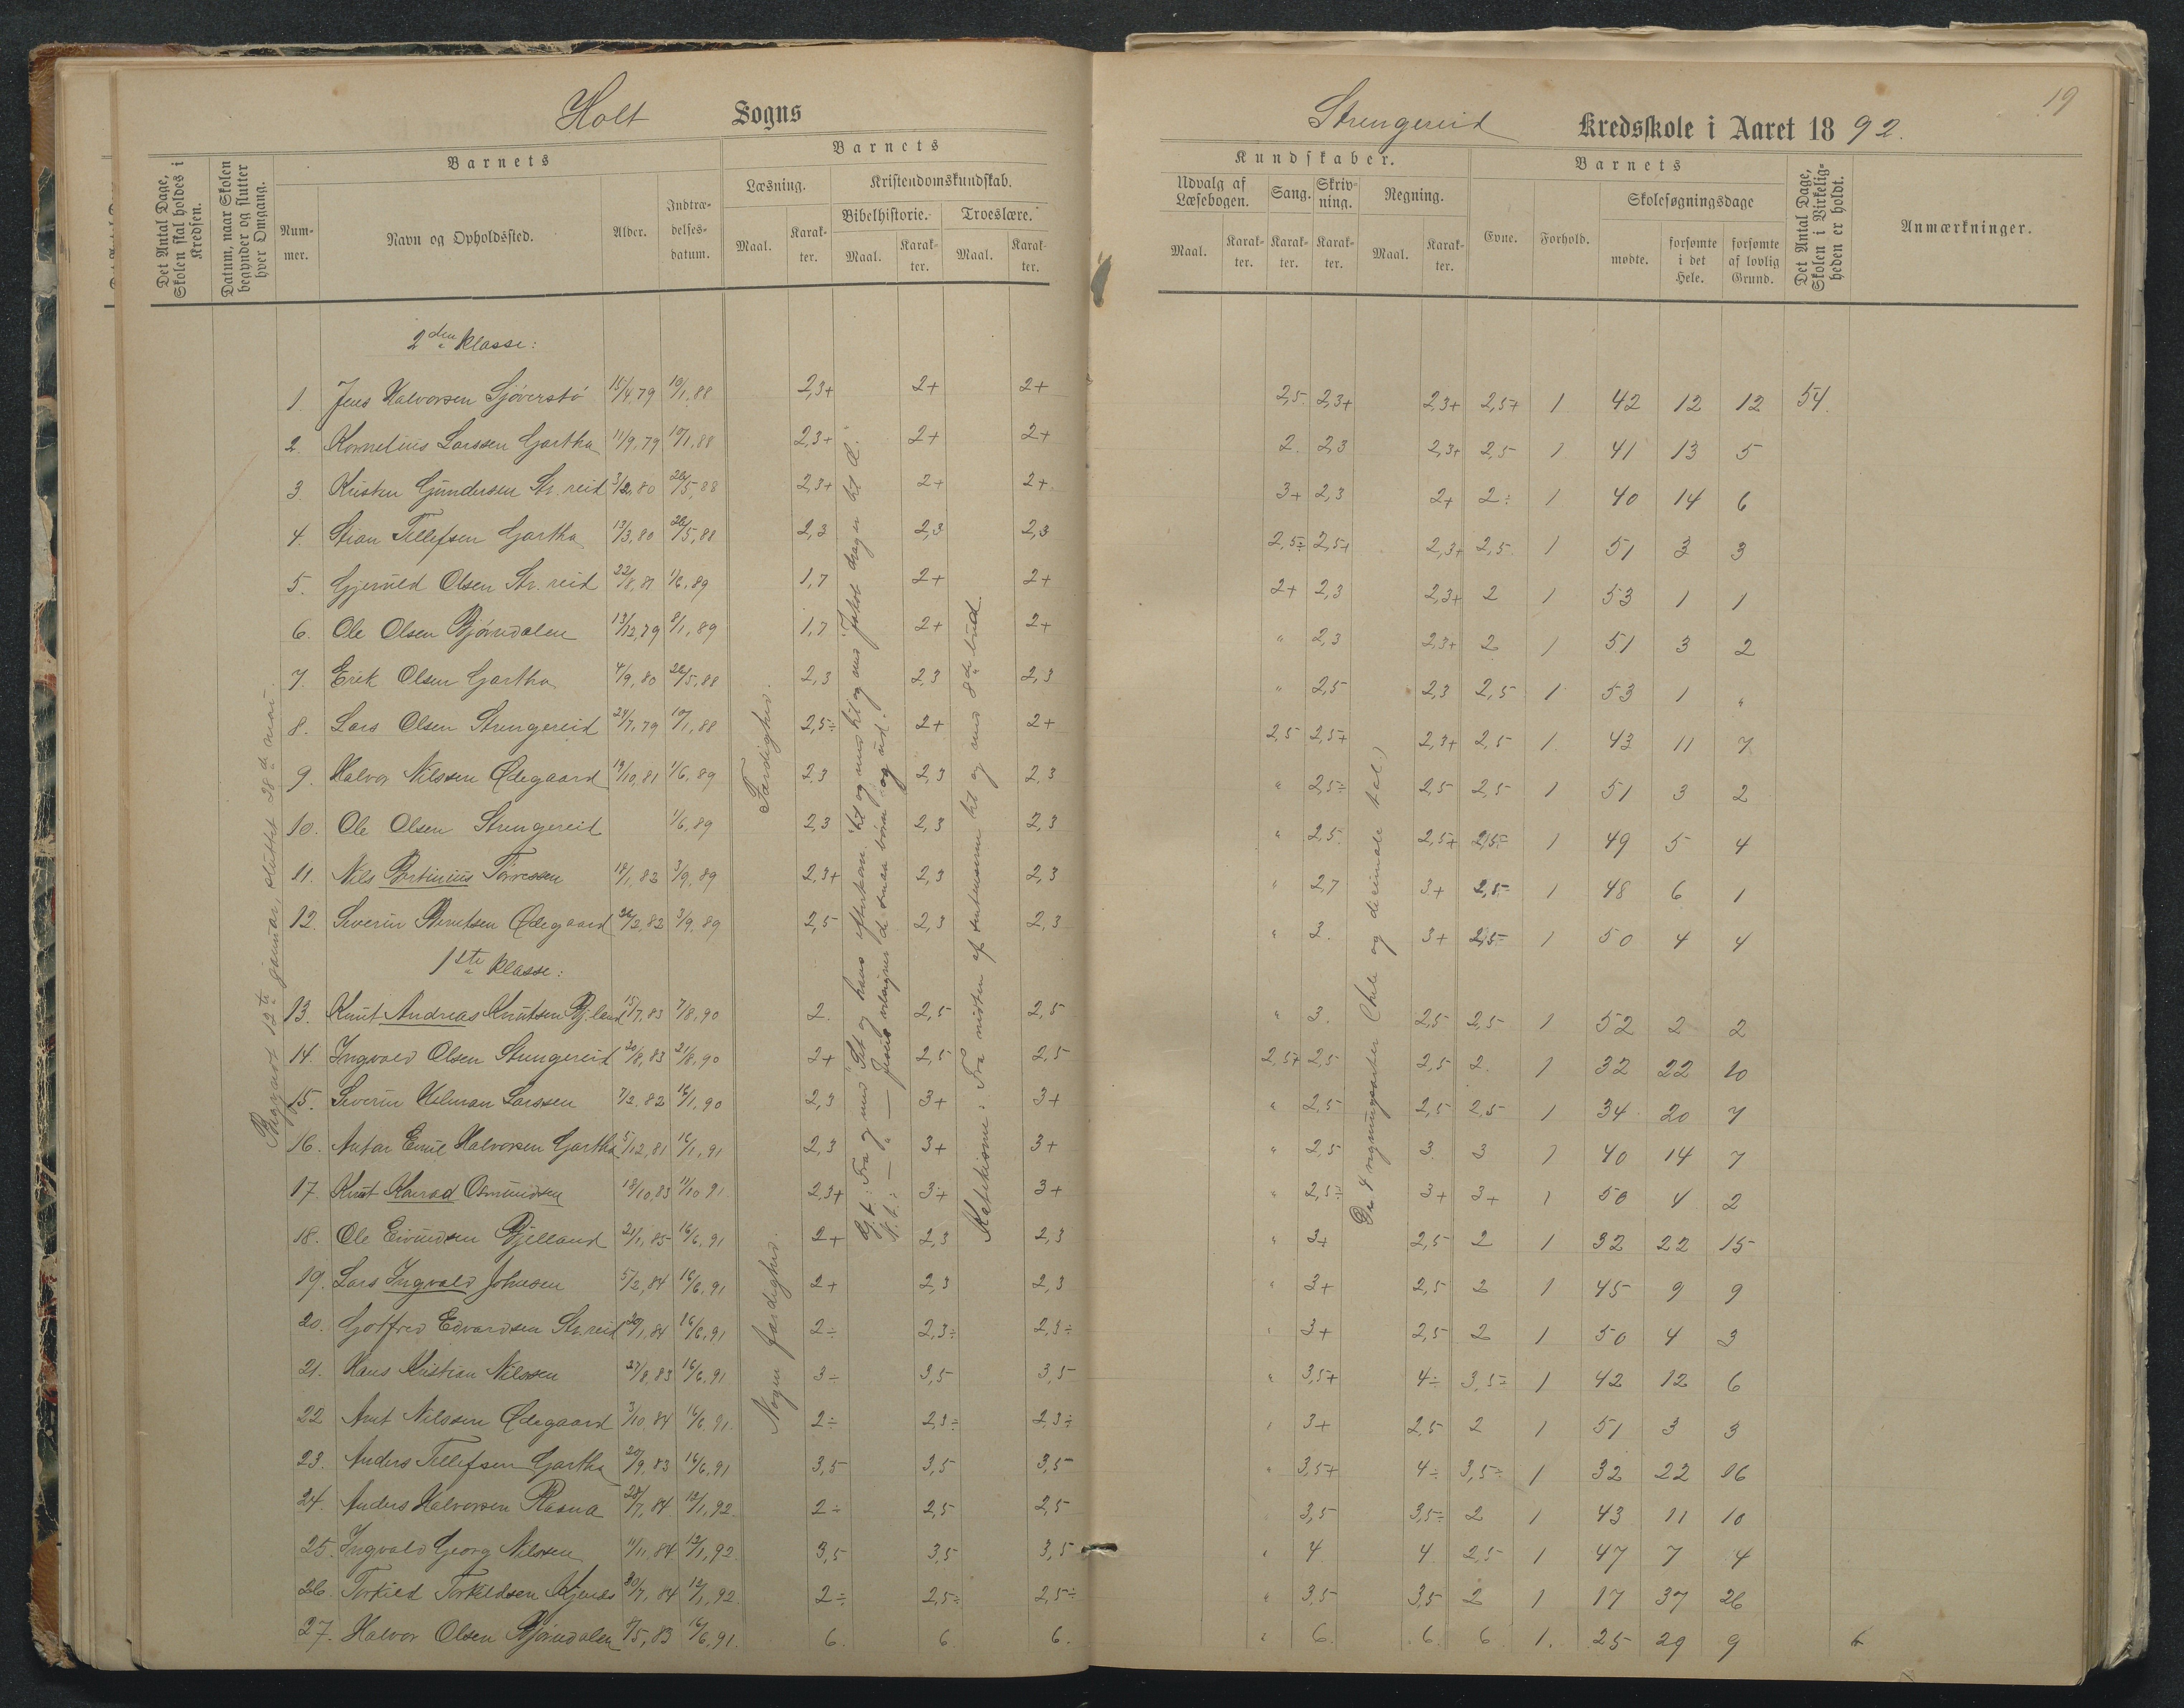 Holt Sogns
Strengereid Kredsskole i Aaret 1892.
19
Det Antal Dage, Skolen skal holdes i Kredsen.
Datum, naar Skolen begynder og slutter hver Omgang.
Barnets
Nummer.
Navn og Opholdssted.
Alder.
Indtrædelsesdatum.
Barnets
Læsning.
Maal.
Karakter.
Kristendomskundskab.
Bibelhistorie.
Maal.
Karakter.
Troeslære.
Maal.
Karakter.
Kundskaber.
Udvalg af Læsebogen.
Maal.
Karakter.
Sang.
Karakter.
Skrivning.
Karakter.
Regning.
Maal.
Karakter.
Barnets
Evne.
Forhold.
Skolesøgningsdage
mødte.
forsømte i det Hele.
forsømte af lovlig Grund.
Det Antal Dage, Skolen i Virkeligheden er holdt.
Anmærkninger.
Begyndt 12te januar, sluttet 28de mai.
Færdighed.
Nogen færdighed.
G.t.: Fra og med "Set og hans efterkom." til og med til og med "Jakob drager til Æ."
N.t.: — " — Jesus velsigner de smaa børn og ud.
Katekisme: Fra midten af til og med 8de bud.
De 4 regningsarter (hele og decimale tal)
2den klasse:
1. Jens Halvorsen Sjøverstø 15/4,79 10/1,88 2,3+ 2+ 2+ 2,5 2,3+ 2,3+ 2,5+ 1 42 12 12 54.
2. Kornelius Larssen Gartha 11/9,79 10/1,88 2,3+ 2+ 2+ 2. 2,3 2,3+ 2,5 1 41 13 5
3. Kristen Gundersen Str.reid 3/2,80 28/5,88 2,3+ 2+ 2+ 3+ 2,3 2+ 2÷ 1 40 14 6
4. Stian Tellefsen Gartha 13/3,80 28/5,88 2,3 2,3 2,3 2,5÷ 2,5+ 2,3+ 2,5 1 51 3 3
5. Gjeruld Olsen Str.reid 22/8,81 1/6,89 1,7 2+ 2+ 2+ 2,3 2,3+ 2 1 53 1 1
6. Ole Olsen Bjørndalen 13/12,79 8/1,89 1,7 2+ 2+ " 2,3 2,3+ 2 1 51 3 2
7. Erik Olsen Gartha 4/9,80 28/5,88 2,3 2,3 2,3 " 2,5 2,3 2,5 1 53 1 "
8. Lars Olsen Strengereid 24/7,79 10/1,88 2,5÷ 2+ 2+ 2,5 2,5+ 2,3+ 2,5 1. 43 11 7
9. Halvor Nilssen Ødegaard 19/10,81 1/6,89 2,3 2,3 2,3 " 2,5÷ 2,5 2,5 1 51 3 2
10. Ole Olsen Strengereid 1/6,89 2,3 2,3 2,3 " 2,5. 2,5+ 2,5÷ 1 49 5 4
11. Nils Bertinius Tørressen 18/1,82 3/9,89 2,3+ 2,3 2,3 " 2,7 3+ 2,5÷ 1 48 6 1
12. Severin Berntsen Ødegaard 26/2,82 3/9,89 2,5 2,3 2,3 " 3. 3+ 2,5÷ 1 50 4 4
1ste klasse:
13. Knut Andreas Knutsen Bj.land 15/7,83 7/8,90 2. 2,5 2,5 " 3. 2,5 2,5 1 52 2 2
14. Ingvald Olsen Strengereid 20/8,83 21/8,90 2+ 2,5 2,5 2,5+ 2,5 2,5 2. 1 32 22 10
15. Severin Helman Larssen 7/2,82 16/1,90 2,3 3+ 3+ " 2,5 2,5 2,5 1 34 20 7
16. Antar Emil Halvorsen Gartha 5/12,81 16/1,91 2,3 3+ 3+ " 2,5 3 3 1 40 14 7
17. Knut Konrad Osmundsen 18/10,83 11/10 91 2,3+ 3+ 3+ " 2,5÷ 3+ 3+ 1 50 4 2
18. Ole Eivindsen Bjelland 21/1,85 16/6,91 2+ 2,3 2,3 " 3+ 2,5 2 1 32 22 15
19. Lars Ingvald Johnsen 5/2,84 16/6,91 2+ 2,3 2,3 " 3+ 2,5 2 1 45 9 9
20. Gotfred Edvardsen Str.reid 20/1,84 16/6,91 2÷ 2,3÷ 2,3÷ " 3+ 2,5 2 1 50 4 3
21. Hans Kristian Nilssen 27/8,83 16/6,91 3÷ 3,5 3,5 " 3,5+ 4÷ 3,5÷ 1 42 12 6
22 Amt Nilssen Ødegaard 3/10,84 16/6,91. 2÷ 2,3÷ 2,3÷ " 3+ 2,5 2 1 51 3 3
23. Anders Tellefsen Gartha 20/9,83 16/6,91 3,5 3,5 3,5 " 3,5+ 4÷ 3,5÷ 1 32 22 16
24. Anders Halvorsen Rasna 28/7,84 12/1,92. 2÷ 2,5 2,5 3,5 3,5÷ 2 1 43 11 10
25. Ingvald Georg Nilssen 11/11,84 12/1,92. 3,5 3,5 3,5 " 4 4 2,5 1 47 7 4
26. Torkild Torkildsen 30/7,84 12/1,92. 2÷ 2,5÷ 2,5÷ " 3,5 3,5 2 1 17 37 26
27. Halvor Olsen Bjørndalen 8/5,83 16/6,91. 6. 6 6. " 6. 6 6 1. 25 29 9